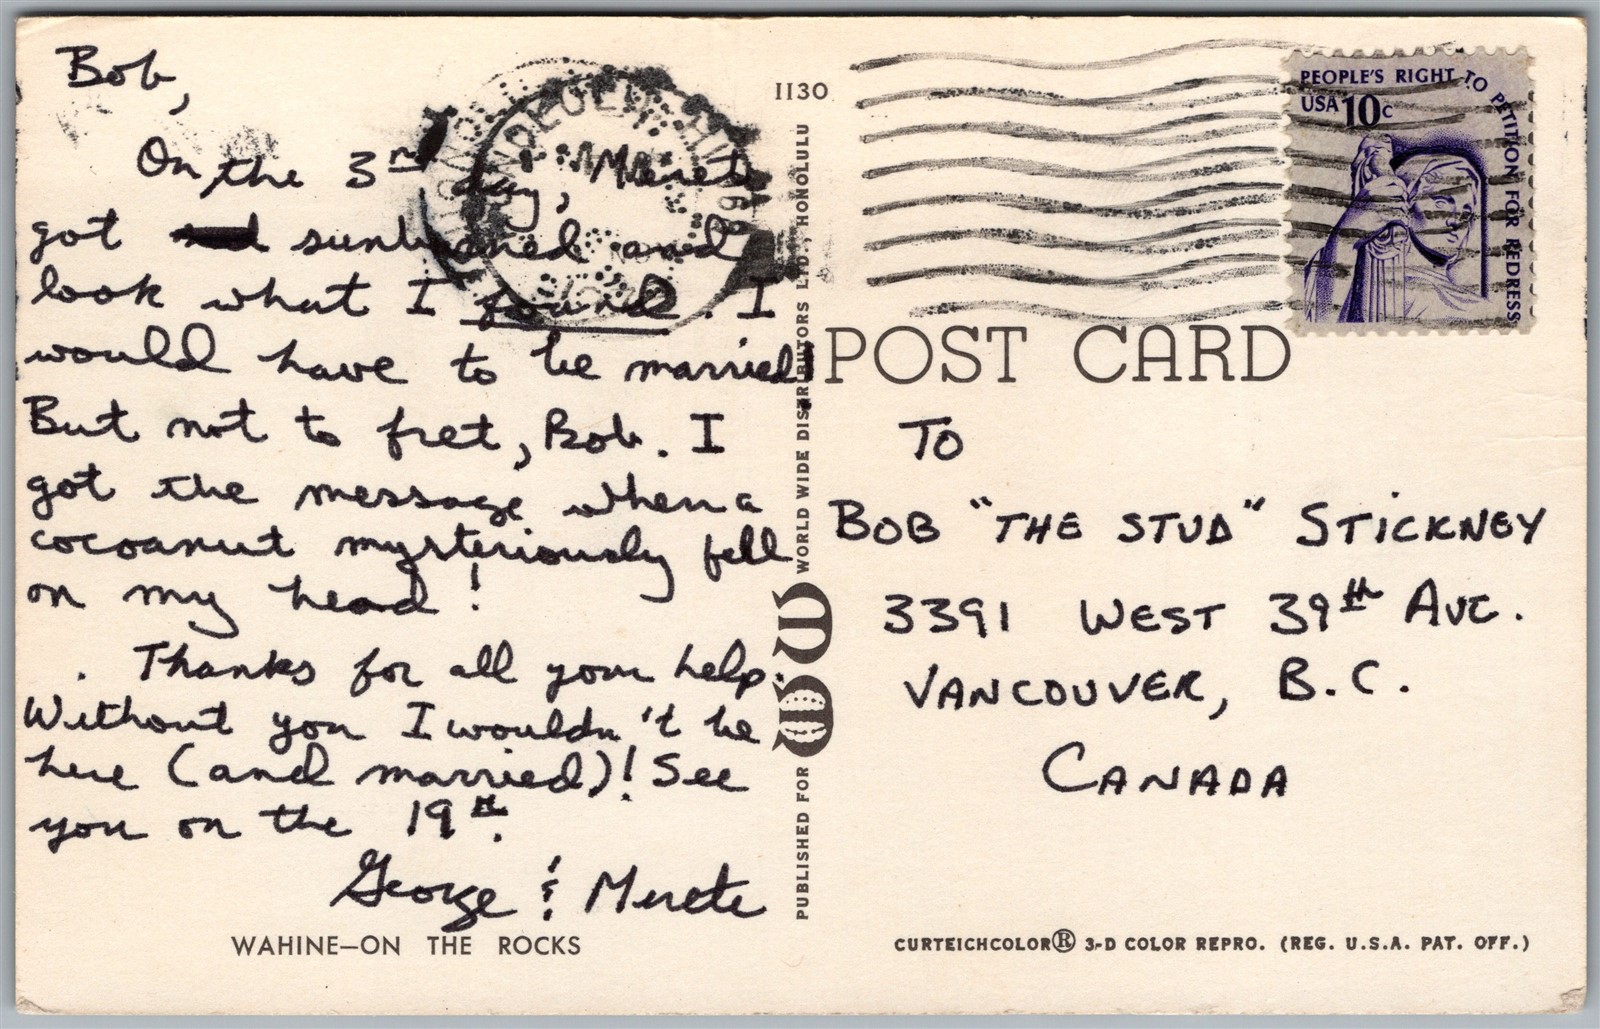 Bob,
On the 3rd day, Merete
got sunburned and
look what I found. I
would have to be married!
But not to fret, Bob. I
got the message when a
cocoanut mysteriously fell
on my head!
Thanks for all your help.
Without you I wouldn't be
here (and married)! See
you on the 19th.
George & Merete
WAHINE—ON THE ROCKS
1130
PUBLISHED FOR WWD WORLD WIDE DISTRIBUTORS LTD., HONOLULU
PEOPLE'S RIGHT TO PETITION FOR REDRESS
USA 10c
POST CARD
TO
BOB "THE STUD" STICKNEY
3391 WEST 39th AVE.
VANCOUVER, B.C.
CANADA
CURTEICHCOLOR® 3-D COLOR REPRO. (REG. U.S.A. PAT. OFF.)